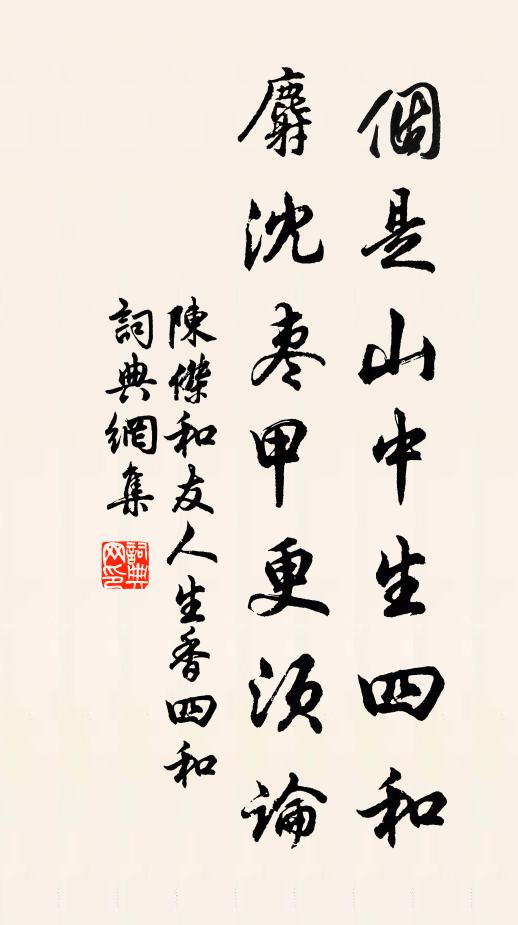 個是山中生四和
麝沈枣甲更須論
陳傑和友人生香四和
詞典網集
詞典网印